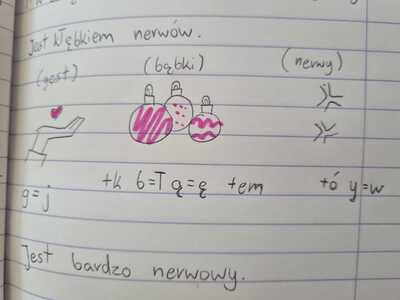 Jest kłębkiem nerwów.
(gest) (bąbki) (nerwy)
g=j +k b=ł ą=ę +em +ó y=w
Jest bardzo nerwowy.